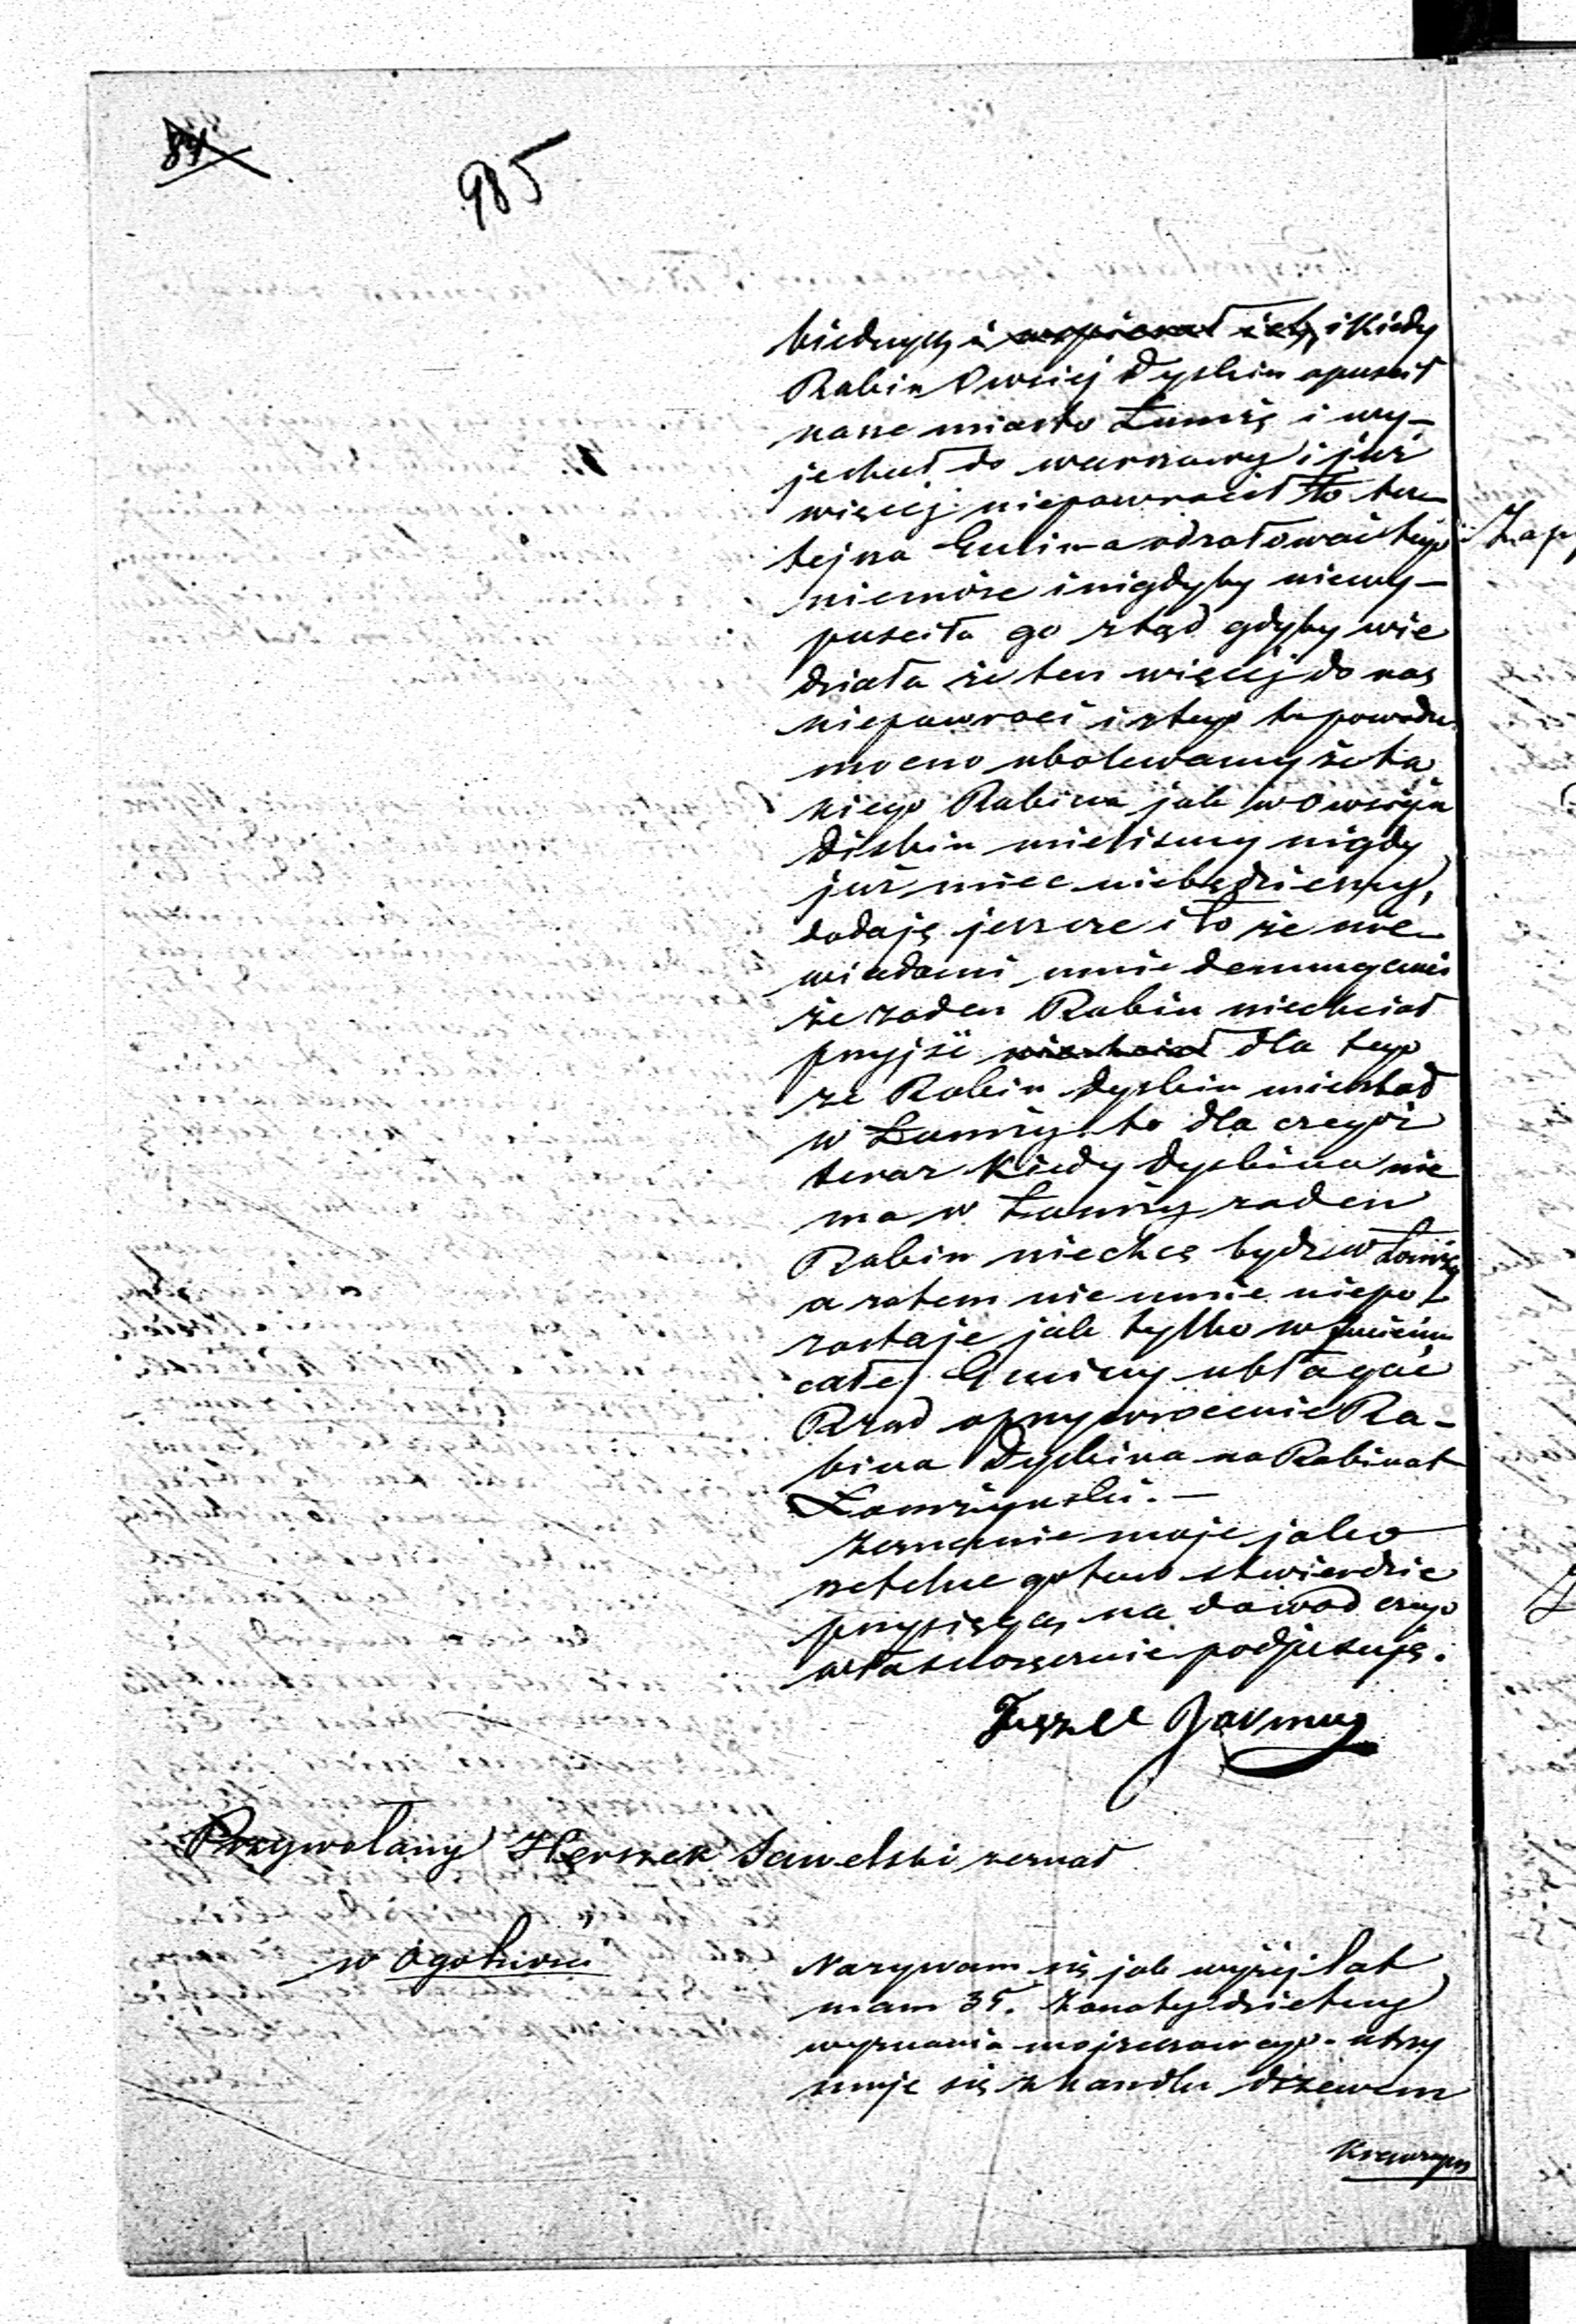 84
985
biednych i wspierał ich, i Kiedy
Rabin Owsiej Dyskin opuscił
nasze miasto Łomżę i wy-
jechał do warszawy i już
więcej niepowrocił to tu-
tejsza Gmina odrałować tego
niemoże i nigdyby niewy-
pusciła go ztąd gdyby wie
działa że ten więcej do nas
niepowroci i ztego to powodu
mocno ubolewamy że ta
kiego Rabina jak Owsieja
Diskin mielismy nigdy
już miec niebędziemy,
dodaję jeszcze i to że nie
wiadomi mnie
że zaden Rabin niechciał
przyjsć niechciał dla tego
że Rabin Dyskin mieszkał
w Łomży to dla czegoż
teraz Kiedy Dyskina nie
ma w Łomży zaden
Rabin niechce bydz w Łomży
a zatem nie mnie niepo
zostaje jak tylko w imieniu
całej Gminy ubłagać
Rząd o przywrocenie Ra-
bina Dyskina na Rabinat
Łomżynski. —
Zeznanie moje jako
rzetelne gotow stwierdzic
przysięgą, na dowod czego
własnoręcznie podpisuję.
Przywołany Herszek Sawelski zeznał
w Ogolnosci
Nazywam się jak wyżej lat
mam 35. Żonaty dzietny
wyznania mojzeszowego utrzy
muje się z handlu drzewem